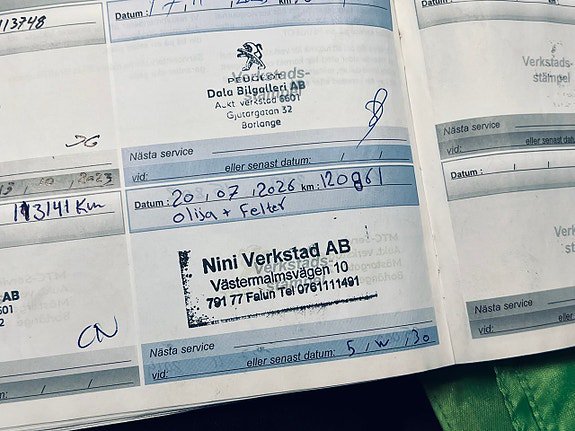 113748
Datum: 17
km:
PEUGEOT
Verkstads-
stämpel
Dala Bilgalleri AB
Aukt verkstad 6601
Gjutargatan 32
Borlänge
Nästa service
vid:
eller senast datum: / /
2023
113141 Km
AB
601
CN
Datum: 20, 07, 2026 km: 120861
Olija + Felter
Nini Verkstad AB
Verkstads-
Västermalmsvägen 10
791 77 Falun Tel 0761111491
Nästa service
vid:
eller senast datum: 5, W, 30
Verkstads-
stämpel
Nästa service
vid:
eller senast datum:
Datum: / /
Nästa service
vid:
eller senast datum: